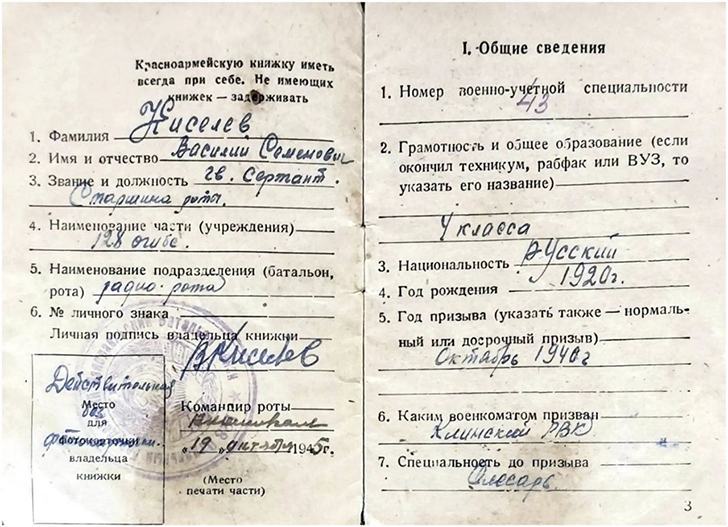 Красноармейскую книжку иметь
всегда при себе. Не имеющих
книжек — задерживать
1. Фамилия Киселев
2. Имя и отчество Василий Семенович
3. Звание и должность гв. Сертант.
Старшина роты.
4. Наименование части (учреждения)
128 огибс.
5. Наименование подразделения (батальон,
рота) радио-рота
6. № личного знака
Личная подпись владельца книжки
ВКиселев
Действительна
без
фотокарточки
Место
для
фотокарточки
владельца
книжки
Командир роты
"19" октября 1945г.
(Место
печати части)
I. Общие сведения
1. Номер военно-учётной специальности
43
2. Грамотность и общее образование (если
окончил техникум, рабфак или ВУЗ, то
указать его название)
4 класса
3. Национальность русский
4. Год рождения 1920г.
5. Год призыва (указать также — нормаль-
ный или досрочный призыв)
Октябрь 1940г
6. Каким военкоматом призван
Клинский РВК
7. Специальность до призыва
Слесарь
3